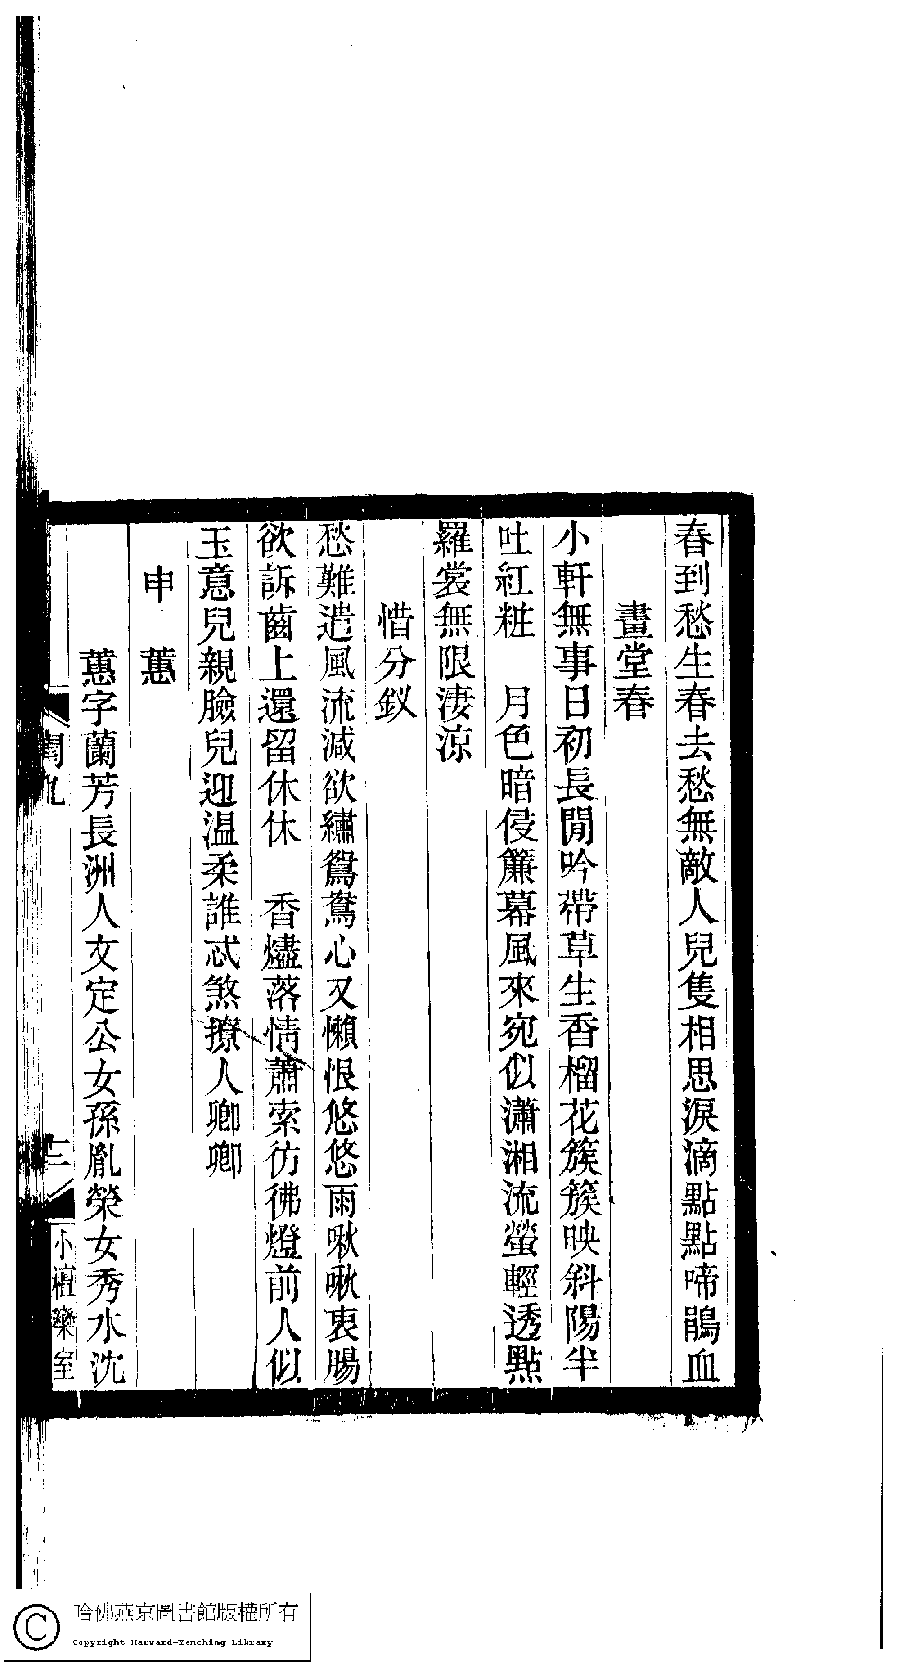 春到愁生春去愁無敵人兒隻相思淚滴點點啼鵑血
畫堂春
小軒無事日初長閒吟帶草生香榴花簇簇映斜陽半
吐紅粧　月色暗侵簾幕風來宛似瀟湘流螢輕透點
羅裳無限淒涼
惜分釵
愁難遣風流減欲繡鴛鴦心又懶恨悠悠雨啾啾衷腸
欲訴齒上還留休休　香燼落情蕭索彷彿燈前人似
玉意兒親臉兒迎温柔誰忒煞撩人卿卿
申　蕙
蕙字蘭芳長洲人文定公女孫胤榮女秀水沈
閨九
三
小檀欒室
哈佛燕京圖書館版權所有
Copyright Harvard-Yenching Library